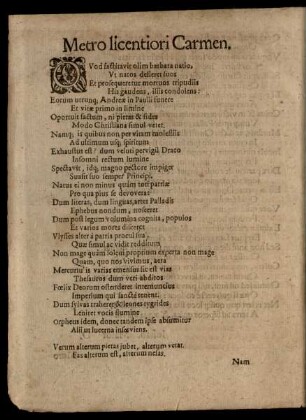 Metro licentiori Carmen.
QVod factitavit olim barbara natio,
Vt natos defleret suos
Et prosequeretur mortuos tripudiis
His gaudens, illis condolens:
Eorum utrunq; Andreæ in Pauli funere
Et vitæ primo in limine
Oportuit factum, ni pietas & fides
Modo Christiana simul vetet.
Namq; is quibus non per vitam molestiis
Ad ultimum usq; spiritum
Exhaustus est? dum veluti pervigil Draco
Insomni rectum lumine
Spectavit, idq; magno pectore impigre
Suasit suo semper Principi.
Natus ei non minus quàm toti patriæ
Pro qua pius se devoveret
Dum literas, dum linguas, artes Palledis
Ephebus nondum, nosceret
Dum post legum volumina cognita, populos
Et varios mores disceret
Vlysses alter à patria procul suis,
Quæ simul ac vidit redditum,
Non magè quàm soloni propium experta non mage
Quam, quo nos vivimus, æra
Mercurius is varias emensus sic est vias
Thesauros dum veri abditos
Fœlix Deorum ostenderet internuncius
Imperium qui sanctè tenent.
Dum feras traheret & leones rugidos
Leniret vocis flumine
Orpheus idem, donec tandem ipse absumitur
Aliis lucerna inserviens.
Verum alterum pietas jubet, alterum vetat.
Fas alterum est, alterum nefas.
Nam